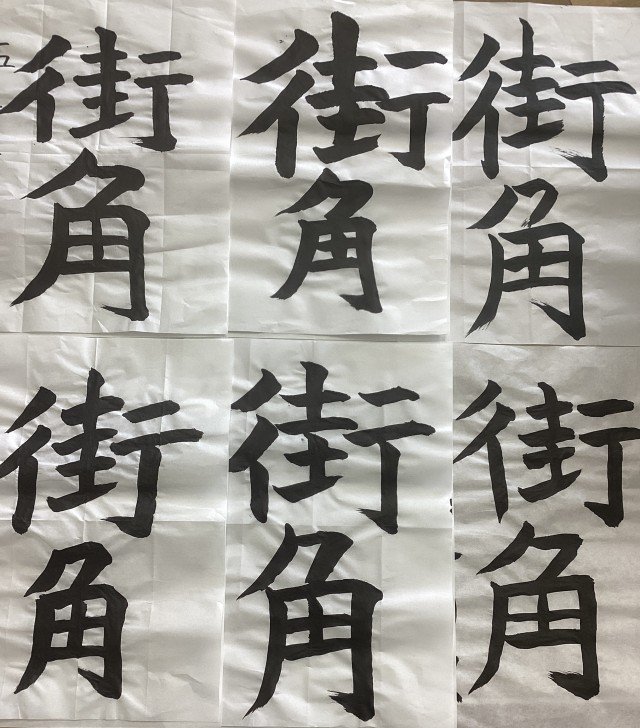 街角
街角
街角
街角
街角
街角